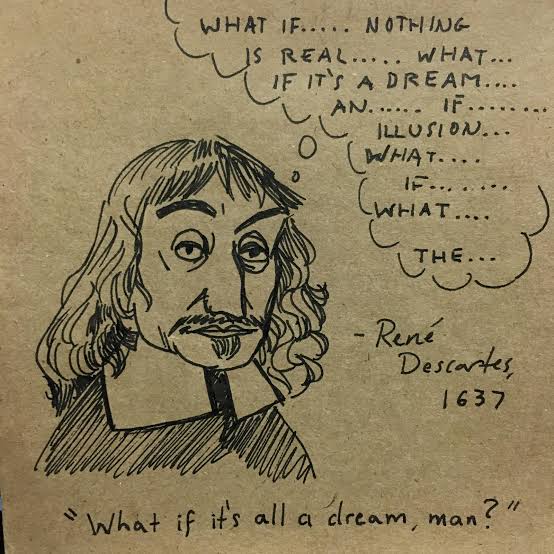 WHAT IF..... NOTHING
IS REAL..... WHAT...
IF IT'S A DREAM....
AN...... IF.........
ILLUSION...
WHAT....
IF.......
WHAT....
THE...
- René
Descartes,
1637
"What if it's all a dream, man?"